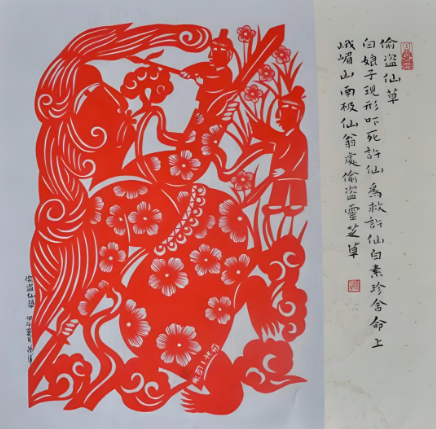 偷盗仙草
白娘子现形吓死許仙為救許仙白素珍舍命上
峨嵋山南极仙翁處偷盗靈芝草